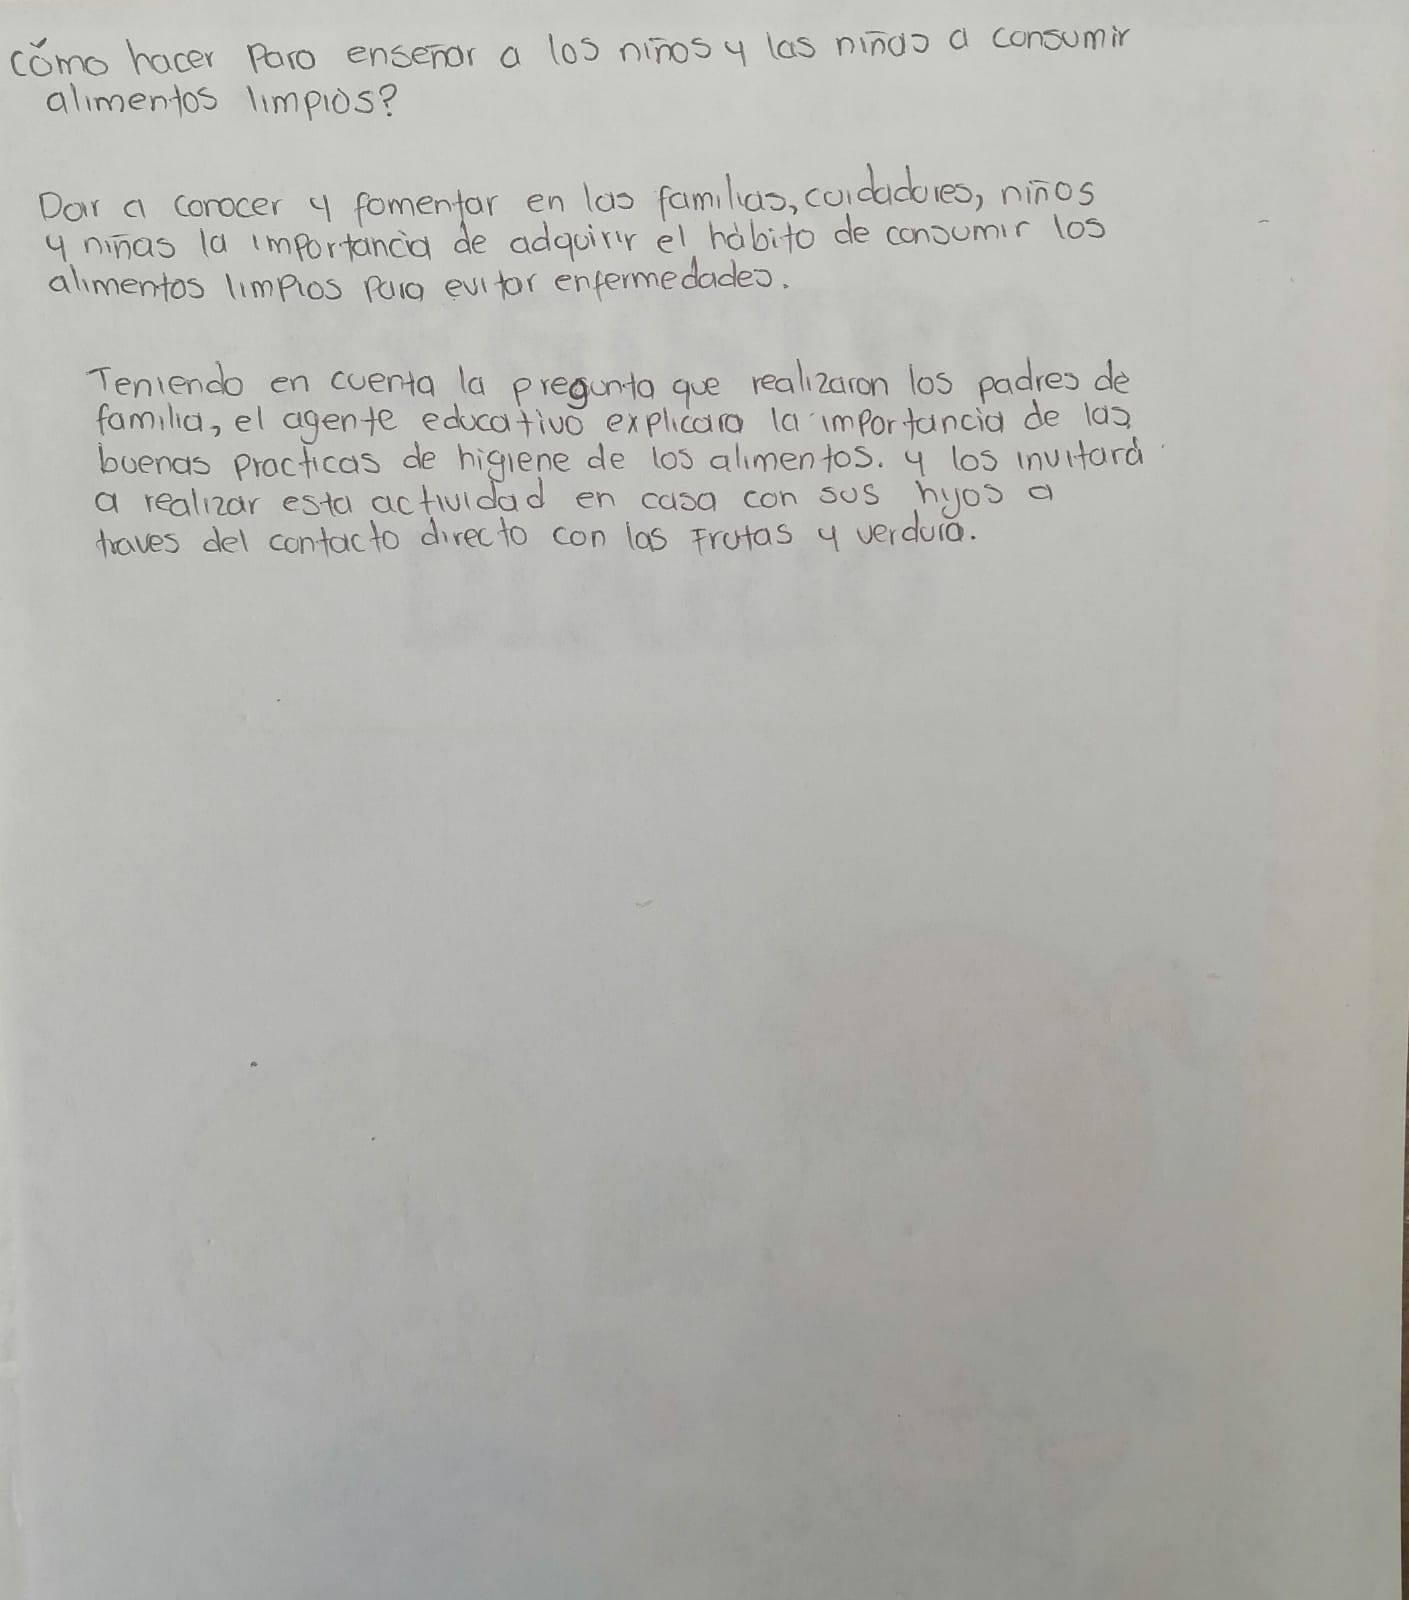 cómo hacer para enseñar a los niños y las niñas a consumir
alimentos limpios?
Dar a conocer y fomentar en las familias, cuidadores, niños
y niñas la importancia de adquirir el hábito de consumir los
alimentos limpios para evitar enfermedades.
Teniendo en cuenta la pregunta que realizaron los padres de
familia, el agente educativo explicara la importancia de las
buenas practicas de higiene de los alimentos. y los invitará
a realizar esta actividad en casa con sus hijos a
traves del contacto directo con las Frutas y verdura.